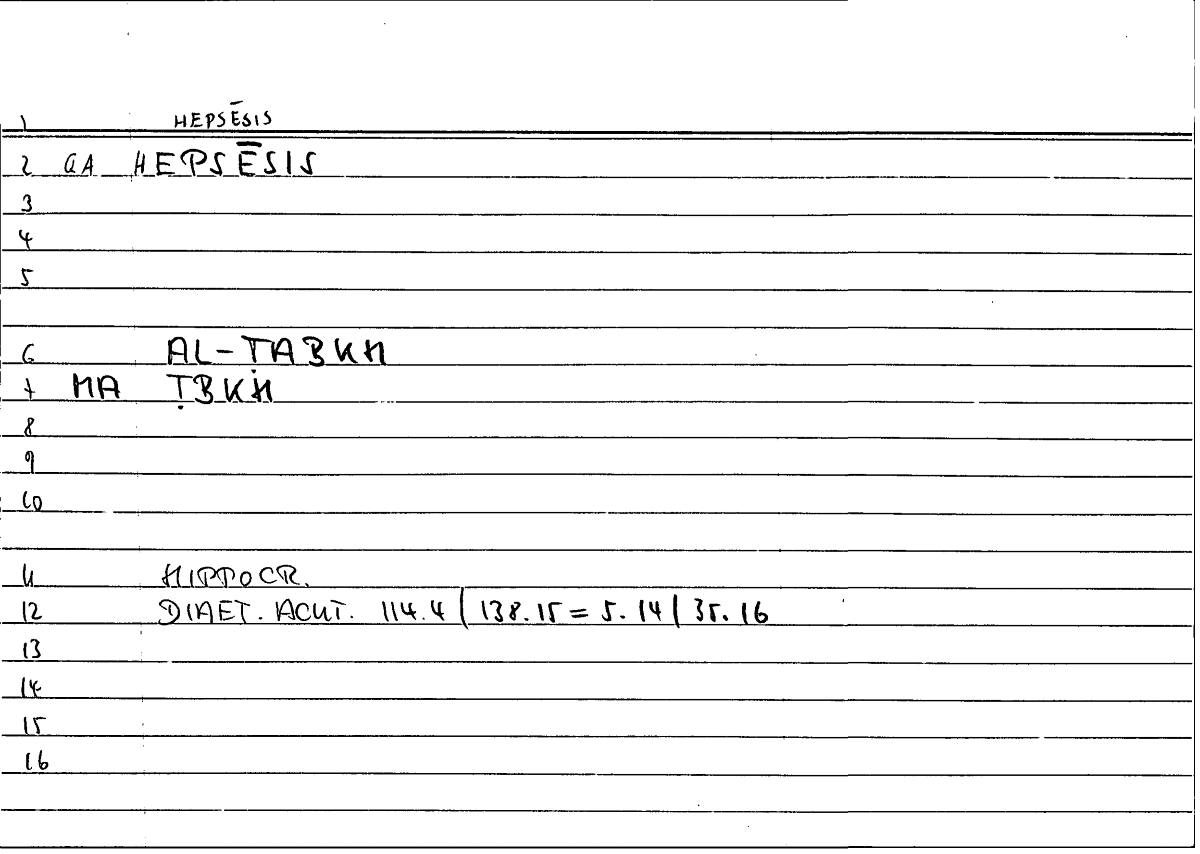 1 HEPSĒSIS
2 GA HEPSĒSIS
3
4
5
6 AL-ṬABKH
7 MA ṬBKH
8
9
10
11 HIPPOCR.
12 DIAET. ACUT. 114.4 | 138.15 = 5.14 | 35.16
13
14
15
16